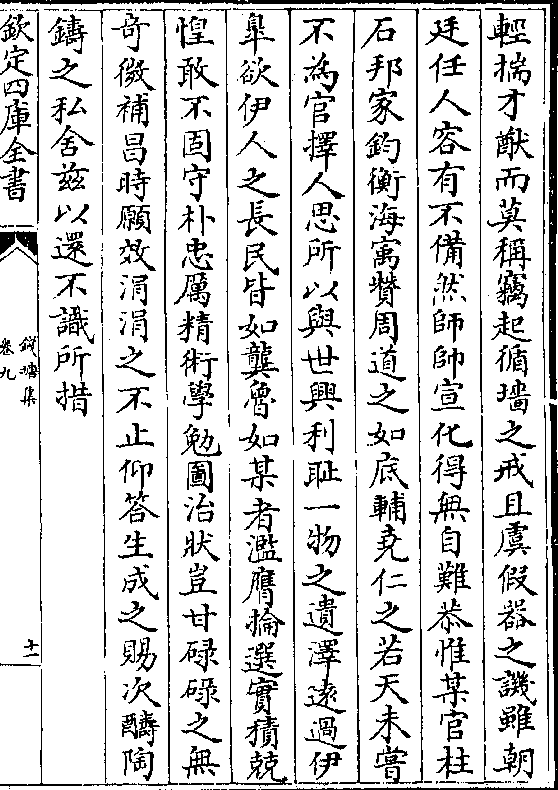 輕揣才猷而莫稱竊起循墻之戒且虞假器之譏雖朝
廷任人容有不備然師帥宣化得無自難恭惟某官柱
石邦家鈞衡海㝢贊周道之如底輔堯仁之若天未嘗
不為官擇人思所以與世興利恥一物之遺澤逺過伊
臯欲伊人之長民皆如龔魯如某者濫膺掄選實積兢
惶敢不固守朴忠厲精術學勉圖治狀豈甘碌碌之無
奇微補昌時願效涓涓之不止仰答生成之賜次醻陶
鑄之私舍兹以還不識所措
欽定四庫全書
錢塘集
卷九
十一